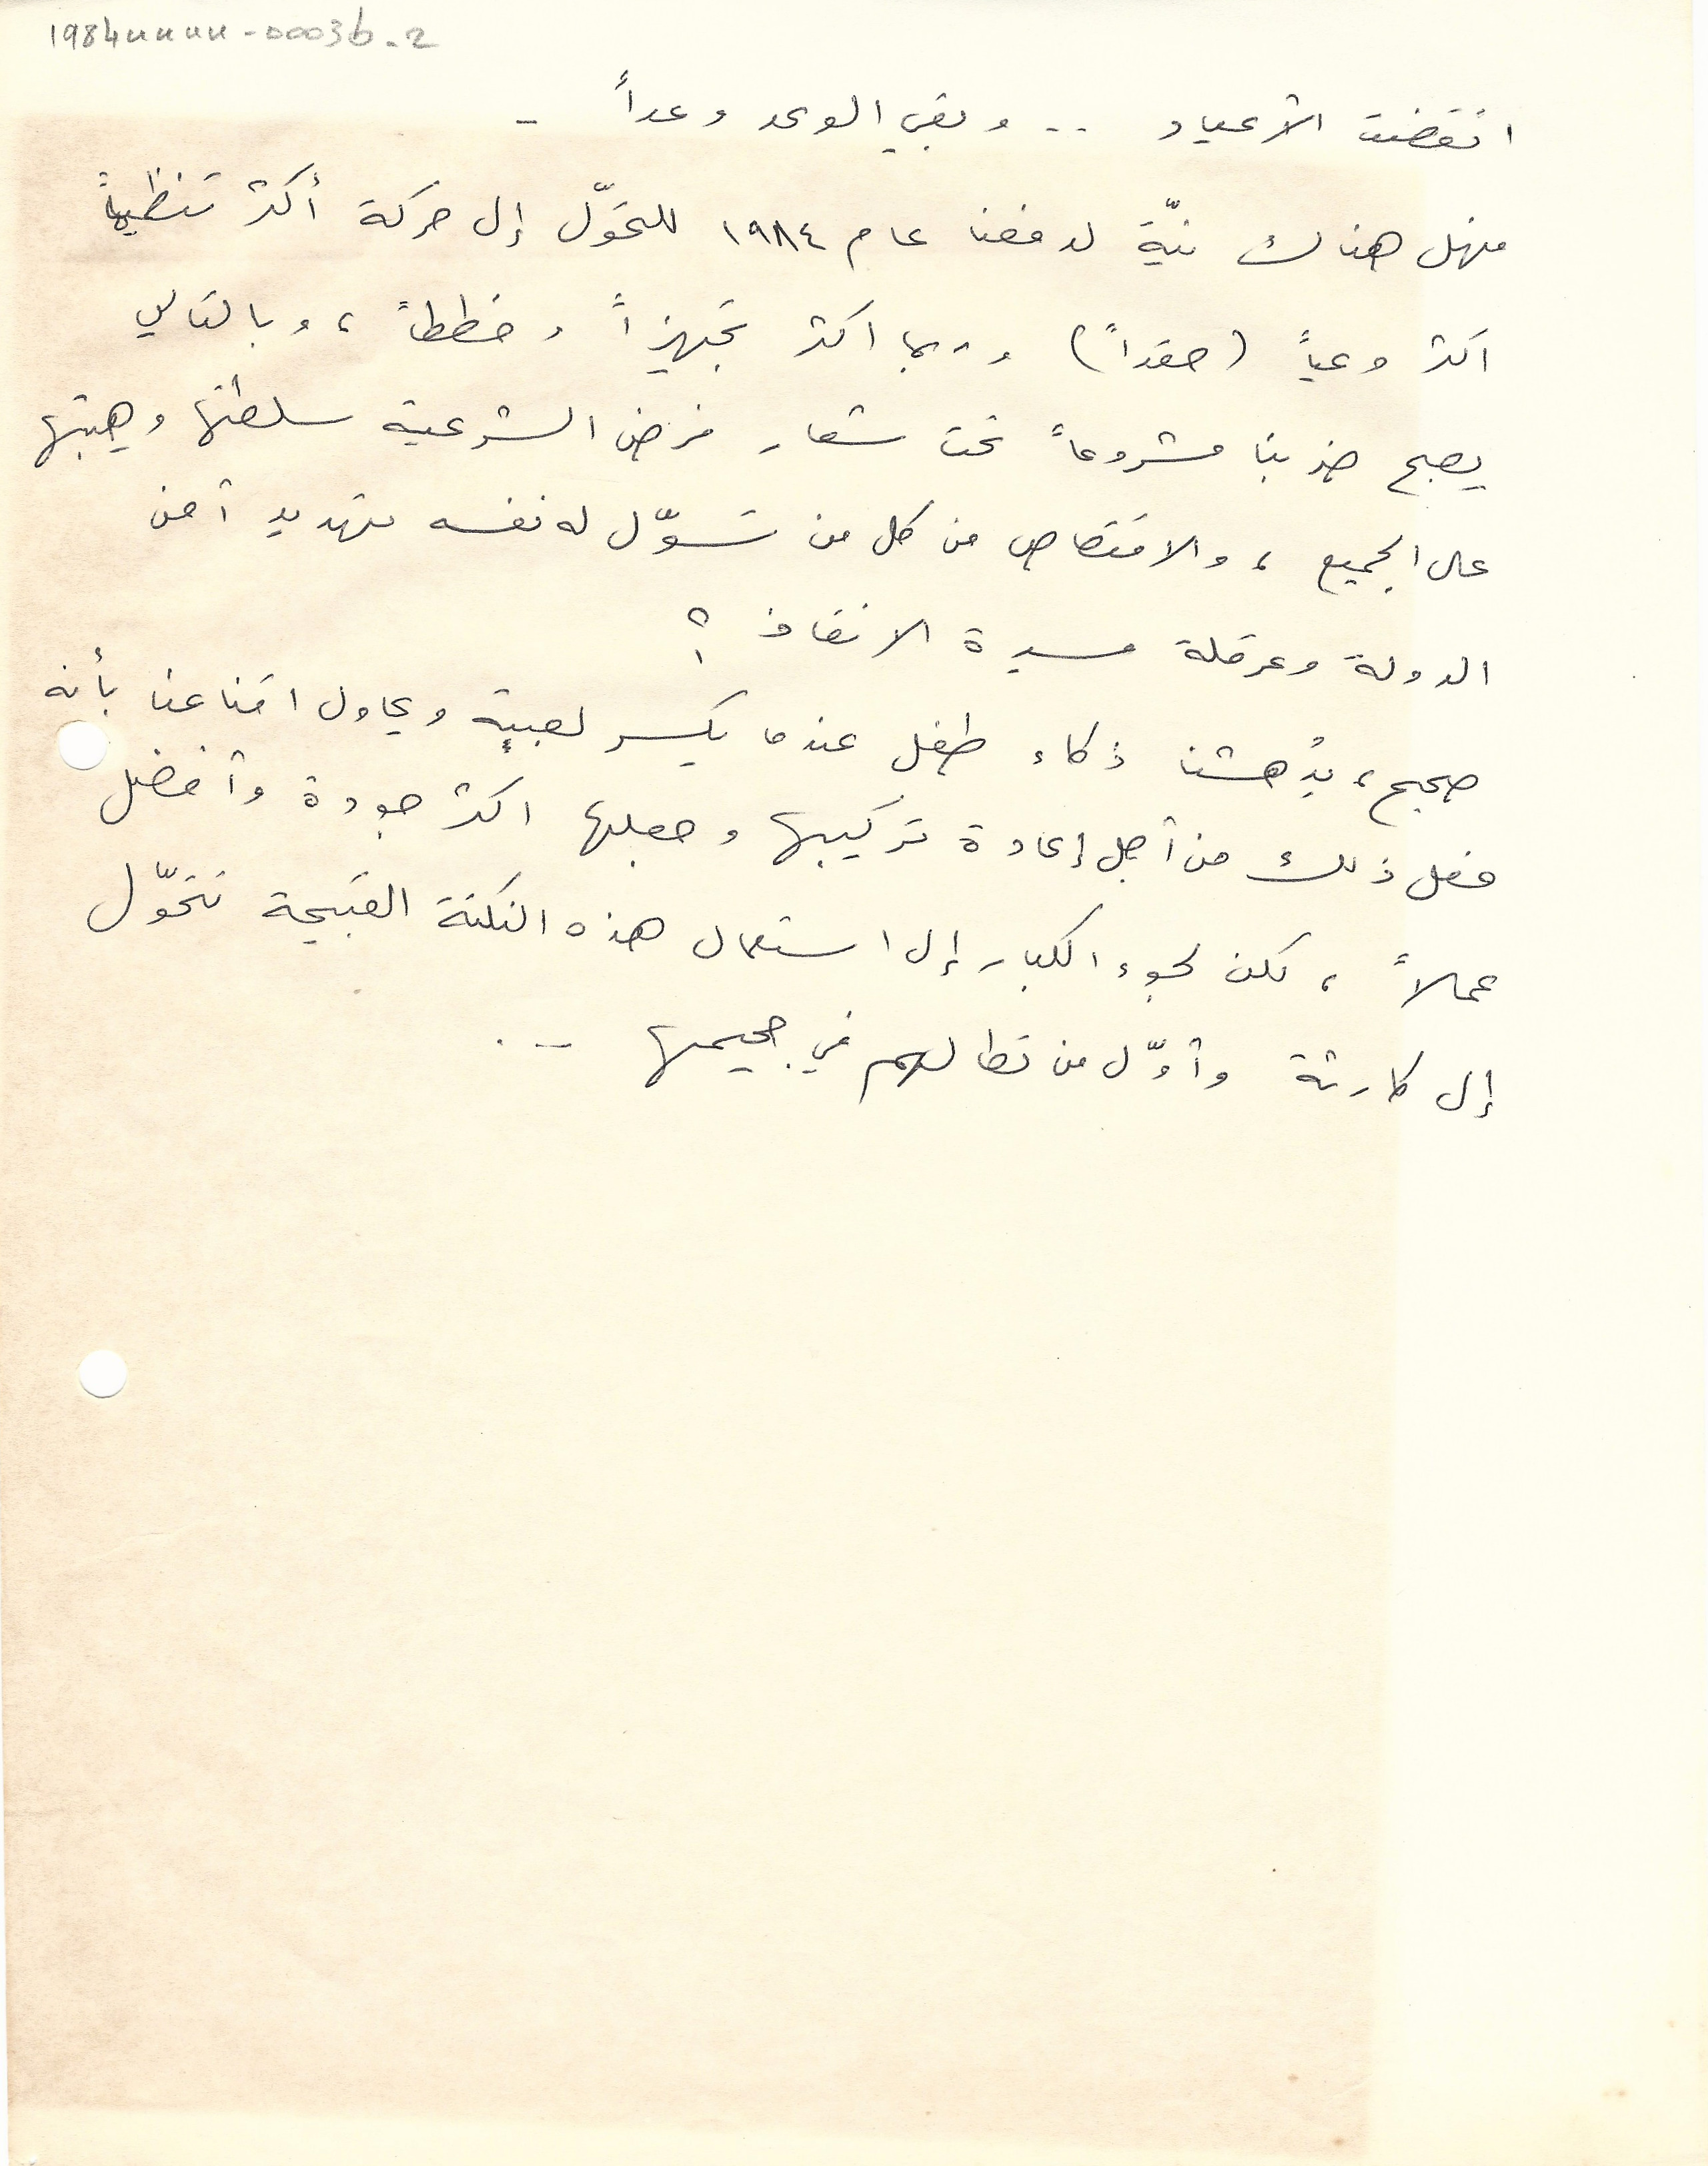 1984uuuu-00036-2
انقضت الأعياد .. وبقي الوعد وعداً -
فهل هناك نيّة لدفعنا عام ١٩٨٤ للتحوّل إلى حركة أكثر تنظيماً
اكثر وعياً (حقداً) وربما اكثر تجهيزاً وخططاً ، وبالتالي
يصبح ضربنا مشروعاً تحت شعار فرض الشرعية سلطتها وهيبتها
على الجميع ، والاقتصاص من كل من تسوّل له نفسه تهديد أمن
الدولة وعرقلة مسيرة الانقاذ ؟
صحيح ، يُدهشنا ذكاء طفل عندما يكسر لعبة ويحاول اقناعنا بأنه
فعل ذلك من أجل إعادة تركيبها وجعلها اكثر جودة وأفضل
عملاً ، لكن لجوء الكبار إلى استعمال هذه النكتة القبيحة تتحوّل
إلى كارثة وأوّل من تطالهم في جحيمها - .